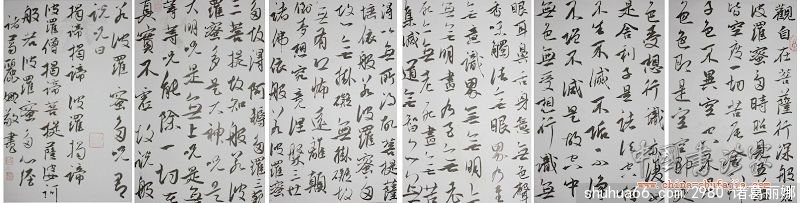 觀自在菩薩行深般
若波羅蜜多時照見五蘊
皆空度一切苦厄舍利
子色不異空空不異
色色即是空空即是
色受想行識亦復如
是舍利子是諸法空相
不生不滅不垢不淨
不增不減是故空中
無色無受想行識無
眼耳鼻舌身意無色聲
香味觸法無眼界乃至
無意識界無無明亦
無無明盡乃至無老
死亦無老死盡無苦
集滅道無智亦無
得以無所得故菩提薩
埵依般若波羅蜜多
故心無掛礙無掛礙故
無有恐怖遠離顛
倒夢想究竟涅槃三世
諸佛依般若波羅蜜
多故得阿耨多羅三藐
三菩提故知般若波羅
蜜多是大神咒是
大明咒是無上咒是無
等等咒能除一切苦
真實不虛故說般
若波羅蜜多咒即
說咒曰
揭諦揭諦波羅揭諦
波羅僧揭諦菩提薩婆訶
般若波羅蜜多心經
諸葛麗娜敬書
shuhuaoo.com 2980 诸葛丽娜